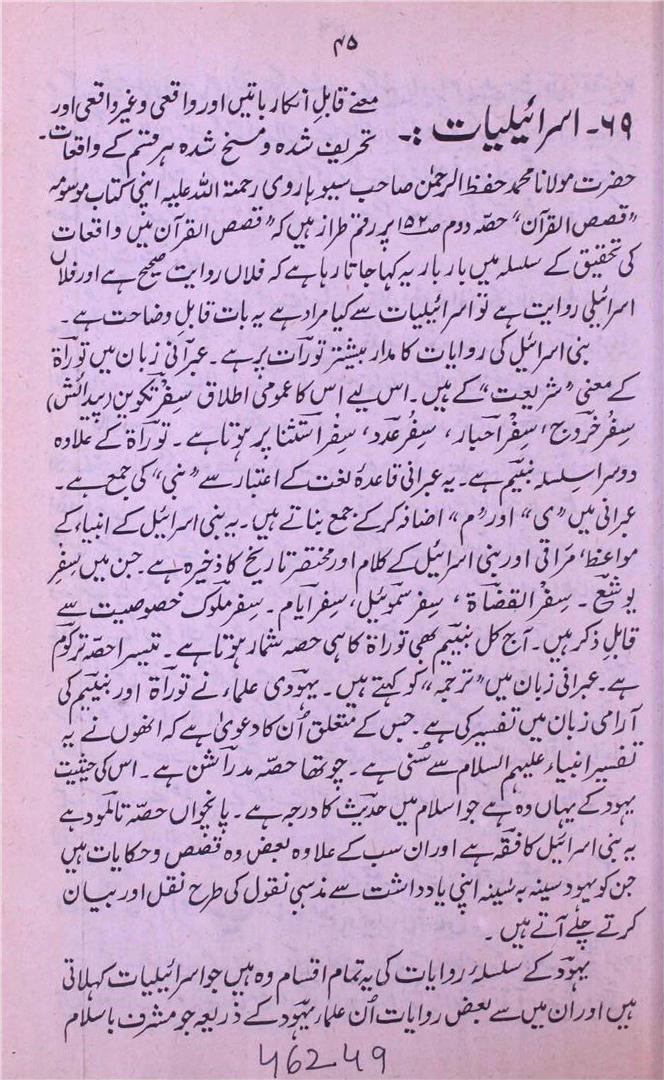 ۴۵
معنے قابلِ انکار باتیں اور واقعی و غیر واقعی اور
۶۹۔ اسرائیلیات :۔
تحریف شدہ و مسخ شدہ ہر قسم کے واقعات۔
حضرت مولانا محمد حفظ الرحمٰن صاحب سیوہاروی رحمۃ اللہ علیہ اپنی کتاب موسومہ
"قصص القرآن" حصہ دوم صـ۱۵۲ پر رقم طراز ہیں کہ "قصص القرآن میں واقعات
کی تحقیق کے سلسلہ میں بار بار یہ کہا جاتا رہا ہے کہ فلاں روایت صحیح ہے اور فلاں
اسرائیلی روایت ہے تو اسرائیلیات سے کیا مراد ہے یہ بات قابلِ وضاحت ہے۔
بنی اسرائیل کی روایات کا مدار بیشتر تورات پر ہے۔ عبرانی زبان میں توراۃ
کے معنی "شریعت" کے ہیں۔ اس لیے اس کا عمومی اطلاق سِفْرِ تکوین (پیدائش)
سِفْر خروج، سِفْر احبار، سِفْر عدد، سِفْر استثنا پر ہوتا ہے۔ توراۃ کے علاوہ
دوسرا سلسلہ نبییم ہے۔ یہ عبرانی قاعدۂ لغت کے اعتبار سے "نبی" کی جمع ہے۔
عبرانی میں "ی" اور "م" اضافہ کرکے جمع بناتے ہیں۔ یہ بنی اسرائیل کے انبیاء کے
مواعظ، مراثی اور بنی اسرائیل کے کلام اور مختصر تاریخ کا ذخیرہ ہے۔ جن میں سِفْرِ
یوشع۔ سِفْر القضاۃ، سِفْر سموئیل، سِفر ایام۔ سِفر ملوک خصوصیت سے
قابلِ ذکر ہیں۔ آج کل نبییم بھی توراۃ کا ہی حصہ شمار ہوتا ہے۔ تیسرا حصہ ترکوم
ہے۔ عبرانی زبان میں "ترجمہ" کو کہتے ہیں۔ یہودی علماء نے توراۃ اور نبییم کی
آرامی زبان میں تفسیر کی ہے۔ جس کے متعلق اُن کا دعویٰ ہے کہ انھوں نے یہ
تفسیر انبیاء علیہم السلام سے سُنی ہے۔ چوتھا حصہ مدراشن ہے۔ اس کی حیثیت
یہود کے یہاں وہ ہے جو اسلام میں حدیث کا درجہ ہے۔ پانچواں حصہ تالمود ہے
یہ بنی اسرائیل کا فقہ ہے اور ان سب کے علاوہ بعض وہ قصص و حکایات ہیں
جن کو یہود سینہ بہ سینہ اپنی یادداشت سے مذہبی نقول کی طرح نقل اور بیان
کرتے چلے آتے ہیں۔
یہود کے سلسلۂ روایات کی یہ تمام اقسام وہ ہیں جو اسرائیلیات کہلاتی
ہیں اور ان میں سے بعض روایات اُن علماء یہود کے ذریعہ جو مشرف باسلام
46249